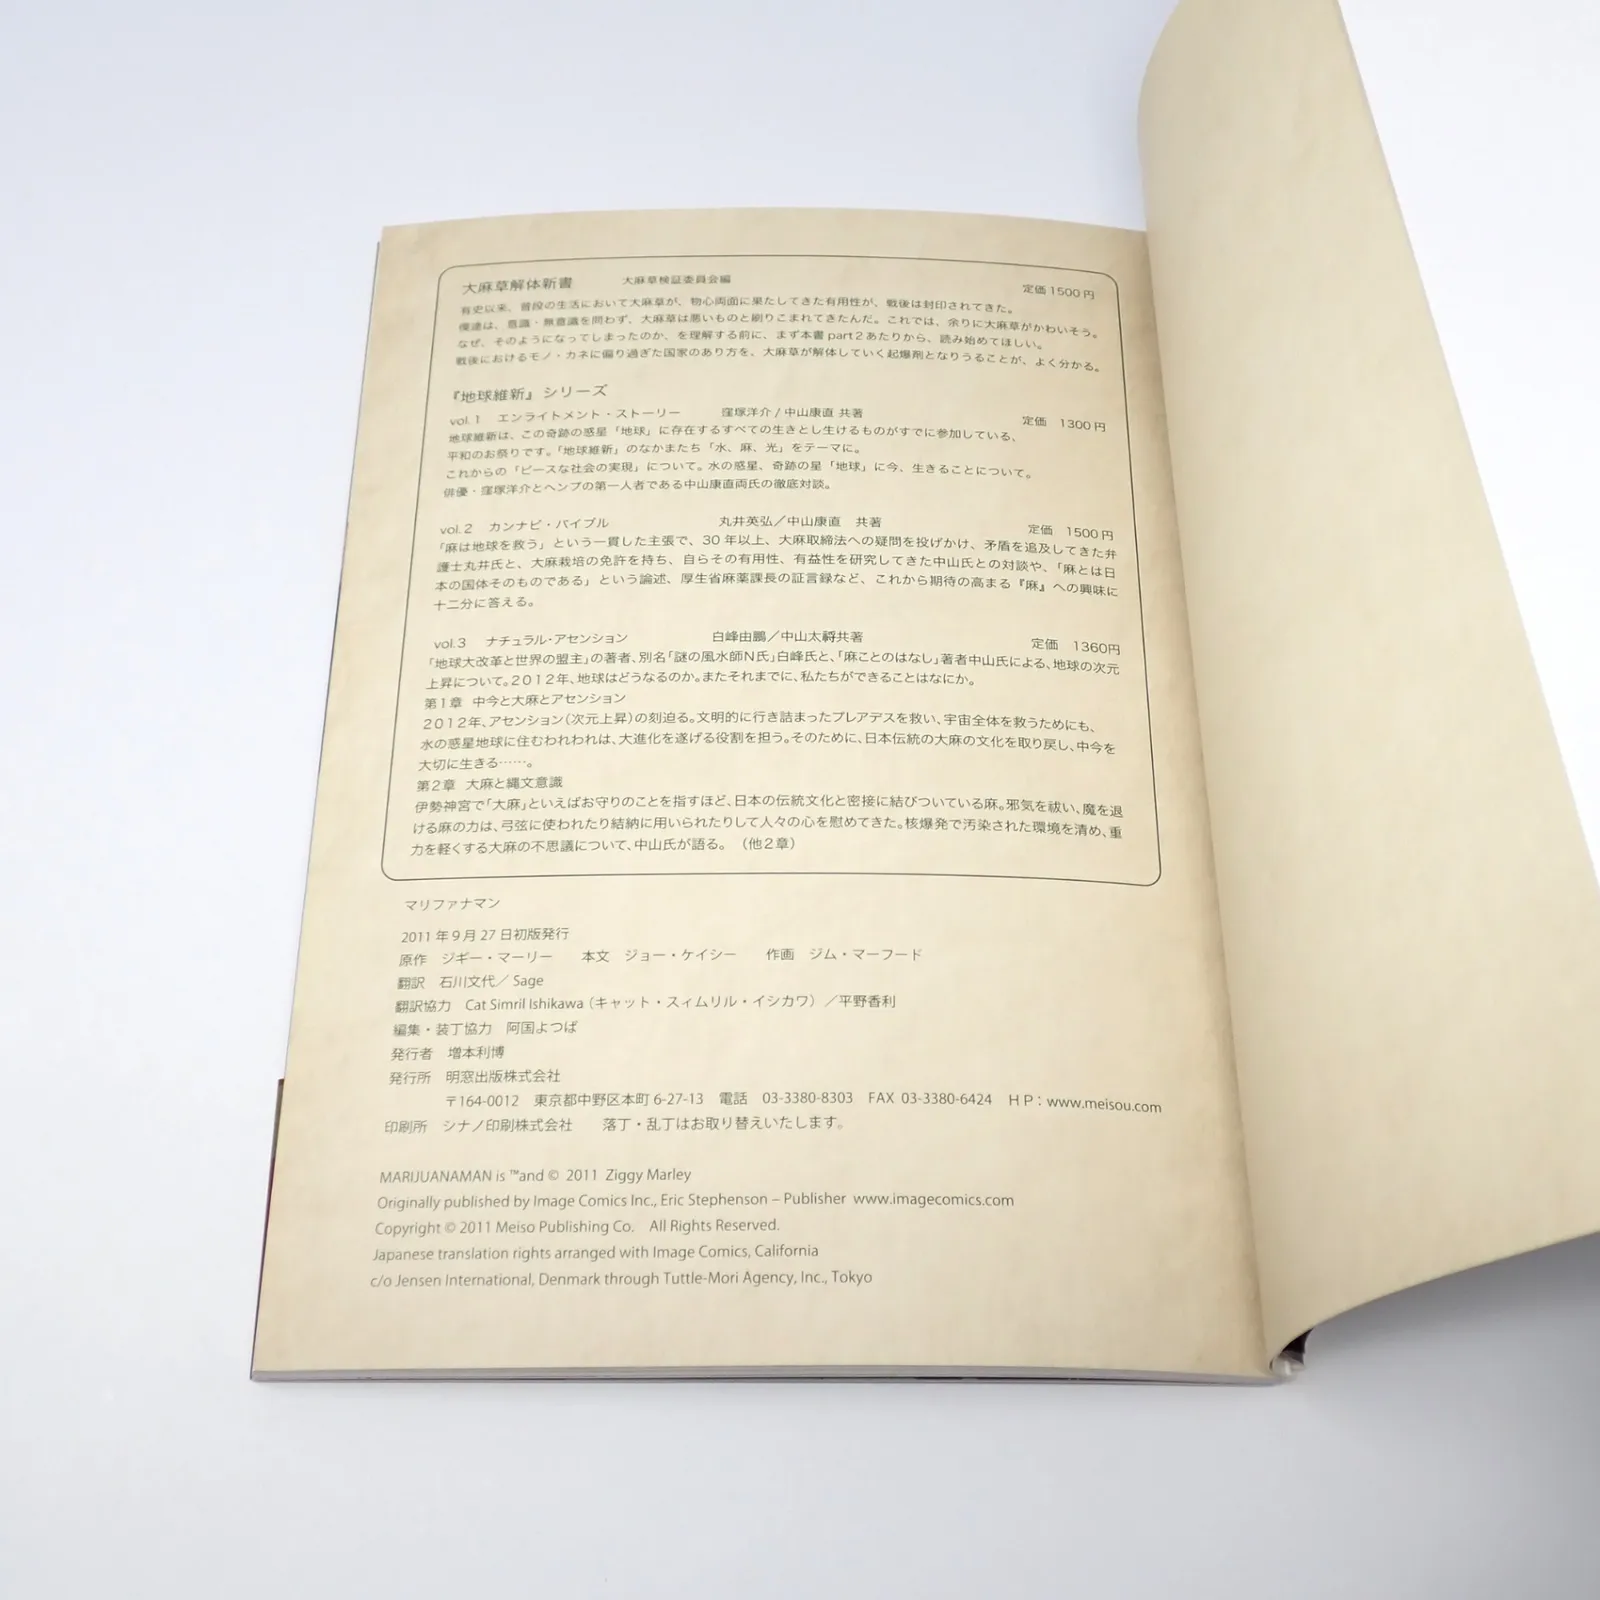 大麻草解体新書　　大麻草検証委員会編　　定価1500円
有史以来、普段の生活において大麻草が、物心両面に果たしてきた有用性が、戦後は封印されてきた。
僕達は、意識・無意識を問わず、大麻草は悪いものと刷りこまれてきたんだ。これでは、余りに大麻草がかわいそう。
なぜ、そのようになってしまったのか、を理解する前に、まず本書part2あたりから、読み始めてほしい。
戦後におけるモノ・カネに偏り過ぎた国家のあり方を、大麻草が解体していく起爆剤となりうることが、よく分かる。
『地球維新』シリーズ
vol.1　エンライトメント・ストーリー　　窪塚洋介/中山康直 共著　　定価　1300円
地球維新は、この奇跡の惑星「地球」に存在するすべての生きとし生けるものがすでに参加している、
平和のお祭りです。「地球維新」のなかまたち「水、麻、光」をテーマに。
これからの「ピースな社会の実現」について。水の惑星、奇跡の星「地球」に今、生きることについて。
俳優・窪塚洋介とヘンプの第一人者である中山康直両氏の徹底対談。
vol.2　カンナビ・バイブル　　丸井英弘／中山康直　共著　　定価　1500円
「麻は地球を救う」という一貫した主張で、30年以上、大麻取締法への疑問を投げかけ、矛盾を追及してきた弁
護士丸井氏と、大麻栽培の免許を持ち、自らその有用性、有益性を研究してきた中山氏との対談や、「麻とは日
本の国体そのものである」という論述、厚生省麻薬課長の証言録など、これから期待の高まる『麻』への興味に
十二分に答える。
vol.3　ナチュラル・アセンション　　白峰由鵬／中山太祠共著　　定価　1360円
「地球大改革と世界の盟主」の著者、別名「謎の風水師N氏」白峰氏と、「麻ことのはなし」著者中山氏による、地球の次元
上昇について。2012年、地球はどうなるのか。またそれまでに、私たちができることはなにか。
第1章　中今と大麻とアセンション
2012年、アセンション（次元上昇）の刻迫る。文明的に行き詰まったプレアデスを救い、宇宙全体を救うためにも、
水の惑星地球に住むわれわれは、大進化を遂げる役割を担う。そのために、日本伝統の大麻の文化を取り戻し、中今を
大切に生きる……。
第2章　大麻と縄文意識
伊勢神宮で「大麻」といえばお守りのことを指すほど、日本の伝統文化と密接に結びついている麻。邪気を祓い、魔を退
ける麻の力は、弓弦に使われたり結納に用いられたりして人々の心を慰めてきた。核爆発で汚染された環境を清め、重
力を軽くする大麻の不思議について、中山氏が語る。（他2章）
マリファナマン
2011年9月27日初版発行
原作　ジギー・マーリー　　本文　ジョー・ケイシー　　作画　ジム・マーフード
翻訳　石川文代／Sage
翻訳協力　Cat Simril Ishikawa（キャット・スィムリル・イシカワ）／平野香利
編集・装丁協力　阿国よつば
発行者　増本利博
発行所　明窓出版株式会社
〒164-0012　東京都中野区本町6-27-13　電話　03-3380-8303　FAX 03-3380-6424　HP：www.meisou.com
印刷所　シナノ印刷株式会社　　落丁・乱丁はお取り替えいたします。
MARIJUANAMAN is ™and © 2011 Ziggy Marley
Originally published by Image Comics Inc., Eric Stephenson – Publisher www.imagecomics.com
Copyright © 2011 Meiso Publishing Co.　All Rights Reserved.
Japanese translation rights arranged with Image Comics, California
c/o Jensen International, Denmark through Tuttle-Mori Agency, Inc., Tokyo